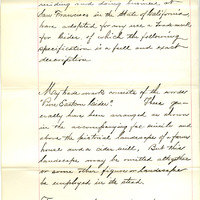 residing and doing business, at
San Francisco in the State of California
have adopted for my use a Trade mark
for Cider, of which the following
specification is a full and exact
description.
My trade mark consists of the words
"Pure Eastern Cider". These gen-
erally have been arranged as shown
in the accompanying fac-simile and
above the pictorial landscape of a farm
house and a cider mill, But this
landscape may be omitted altogether
or some other figure or landscape
be employed in its stead.